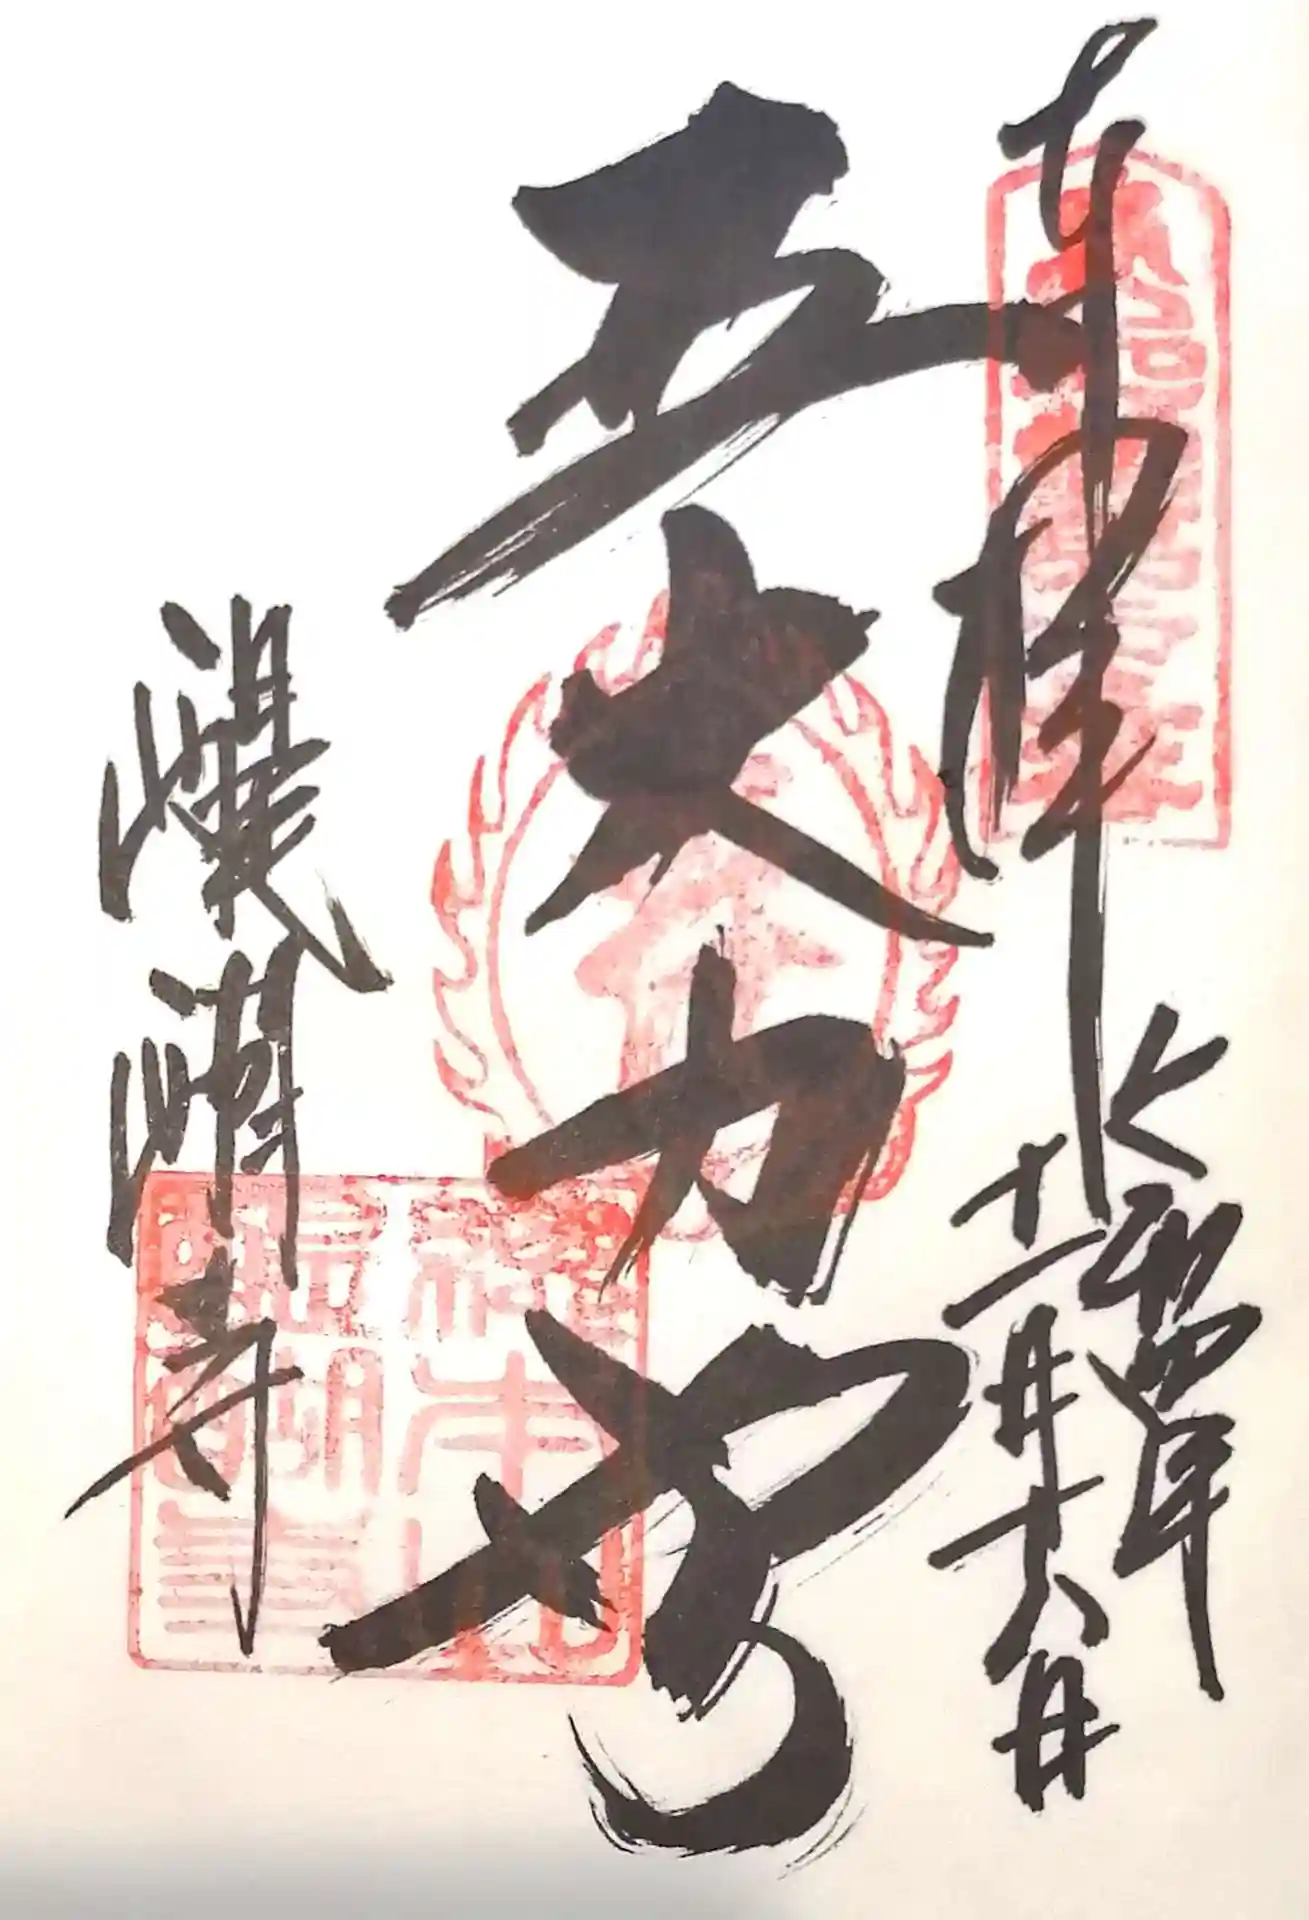 奉拝
令和四年
十一月十六日
五大力尊
醍醐寺
総本山
醍醐寺